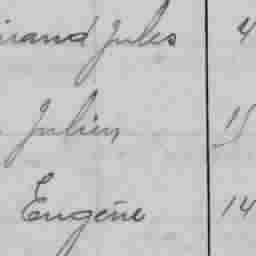 Jules 4
Julien 15
Eugène 14